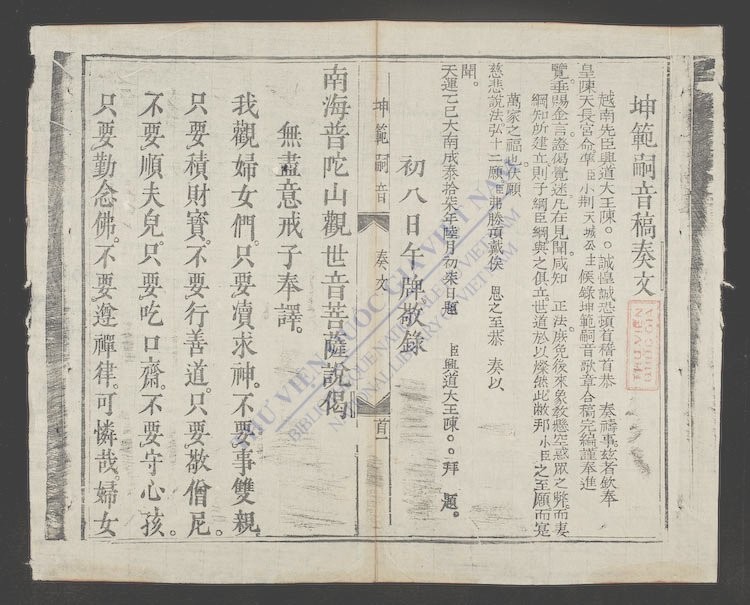 坤範嗣音稿奏文
越南先臣興道大王陳。。誠惶誠恐頓首稽首恭　奏禱事玆者欽奉
皇陳天長宮命準臣小荆天城公主候錄坤範嗣音歌章合稿完編謹奉進
覽垂賜金言證偈覺迷凡在見聞咸知　正法庶免後來象教懸空惑眾之弊而妻
綱知所建立則子綱臣綱與之俱立世道於以燦然此敝邦小臣之至願而寔
萬家之福也伏願
慈悲說法弘十二願臣弗勝頂戴俟　恩之至恭　奏以
聞。
天運乙巳大南成泰拾柒年陸月初柒日題　臣興道大王陳。。拜　題。
初八日午牌敬錄
坤範嗣音　奏文　首一
南海普陀山觀世音菩薩說偈
無盡意戒子奉譯。
我觀婦女們。只要瀆求神。不要事雙親。
只要積財寶。不要行善道。只要敬僧尼。
不要順夫兒。只要吃口齋。不要守心孩。
只要勤念佛。不要遵禪律。可憐哉。婦女
THƯ VIỆN QUỐC GIA VIỆT NAM
BIBLIOTHEQUE NATIONALE DU VIETNAM
NATIONAL LIBRARY OF VIETNAM
THU VIEN
QUOC GIA